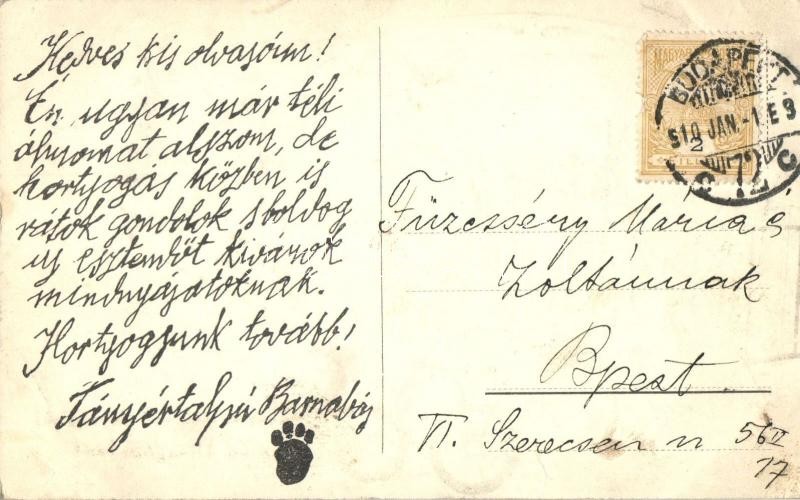 Kedves kis olvasóim!
Én ugyan már téli
álmomat alszom, de
hortyogás közben is
rátok gondolok s boldog
uj esztendőt kivánok
mindnyájatoknak.
Hortyogjunk tovább!
Tányértalpú Barnabás
MAGYAR
BUDAPEST
910 JAN.-1.E 9
72
Füzesséry Mária és
Zoltánnak
Bpest.
VI. Szerecsen u 56 II
17